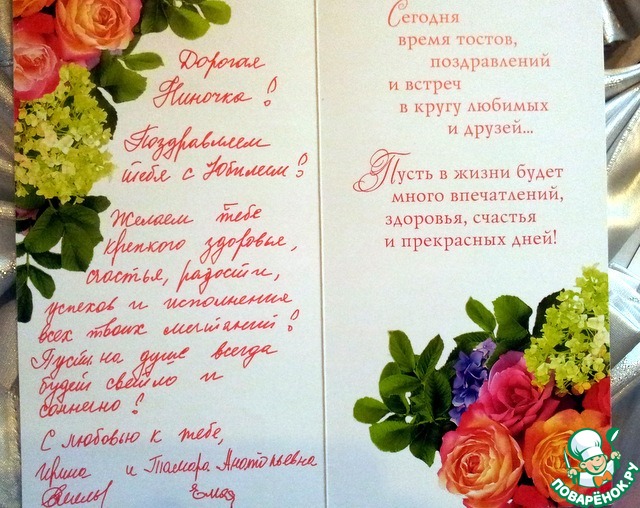 Дорогая
Ниночка!
Поздравляем
тебя с Юбилеем!
Желаем тебе
крепкого здоровья,
счастья, радости,
успехов и исполнения
всех твоих мечтаний!
Пусть на душе всегда
будет светло и
солнечно!
С любовью к тебе,
Ирина и Тамара Анатольевна
Сегодня
время тостов,
поздравлений
и встреч
в кругу любимых
и друзей...
Пусть в жизни будет
много впечатлений,
здоровья, счастья
и прекрасных дней!
ПОВАРЁНОК.РУ